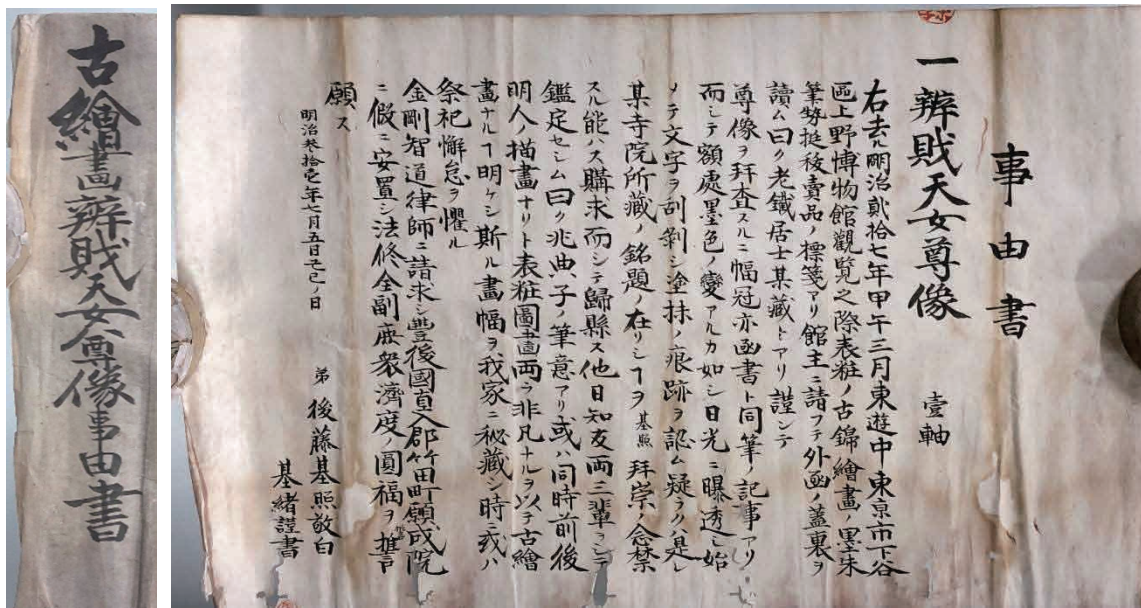 古繪畫辨戝天女尊像事由書
事由書
一辨戝天女尊像　壹軸
右去ル明治貳拾七年甲午三月東遊中東京市下谷
區上野博物館觀覽之際表粧ノ古錦繪畫ノ墨朱
筆勢挺秀賣品ノ標箋アリ館主ニ請フテ外函ノ蓋裏ヲ
讀ム曰ク老鐵居士某藏トアリ謹シテ
尊像ヲ拜査スルニ幅冠亦函書ト同筆ノ記事アリ
而シテ額處墨色ノ變アルカ如シ日光ニ曝透シ始
メテ文字ヲ刮剝シ塗抹ノ痕跡ヲ認ム疑ラクハ是レ
某寺院所藏ノ銘題ノ在リシヿヲ基照拜崇ノ念禁
スル能ハス購求而シテ歸縣ス他日知友両三輩ヲシテ
鑑定セシム曰ク兆典子ノ筆意アリ或ハ同時前後
明人ノ描畫ナリト表粧圖畵両ラ非凡ナルヲ以テ古繪
畫ナルヿ明ケシ斯ル畫幅ヲ我家ニ秘藏シ時ニ或ハ
祭祀懈怠ヲ懼ル
金剛智道律師ニ請求シ豐後國直入郡竹田町願成院
ニ假ニ安置シ法修全副庶衆濟度ノ圓福ヲ誓
願ス
明治參拾壱年七月五日己巳ノ日
弟　後藤基照敬白
基緒謹書